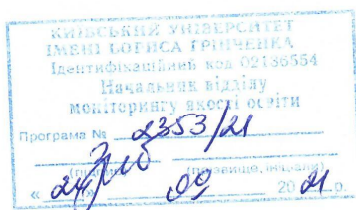 КИЇВСЬКИЙ УНІВЕРСИТЕТ
ІМЕНІ БОРИСА ГРІНЧЕНКА
Ідентифікаційний код 02136554
Начальник відділу
моніторингу якості освіти
Програма № 2353/21
(прізвище, ініціали)
« 24 » 09 20 21 р.